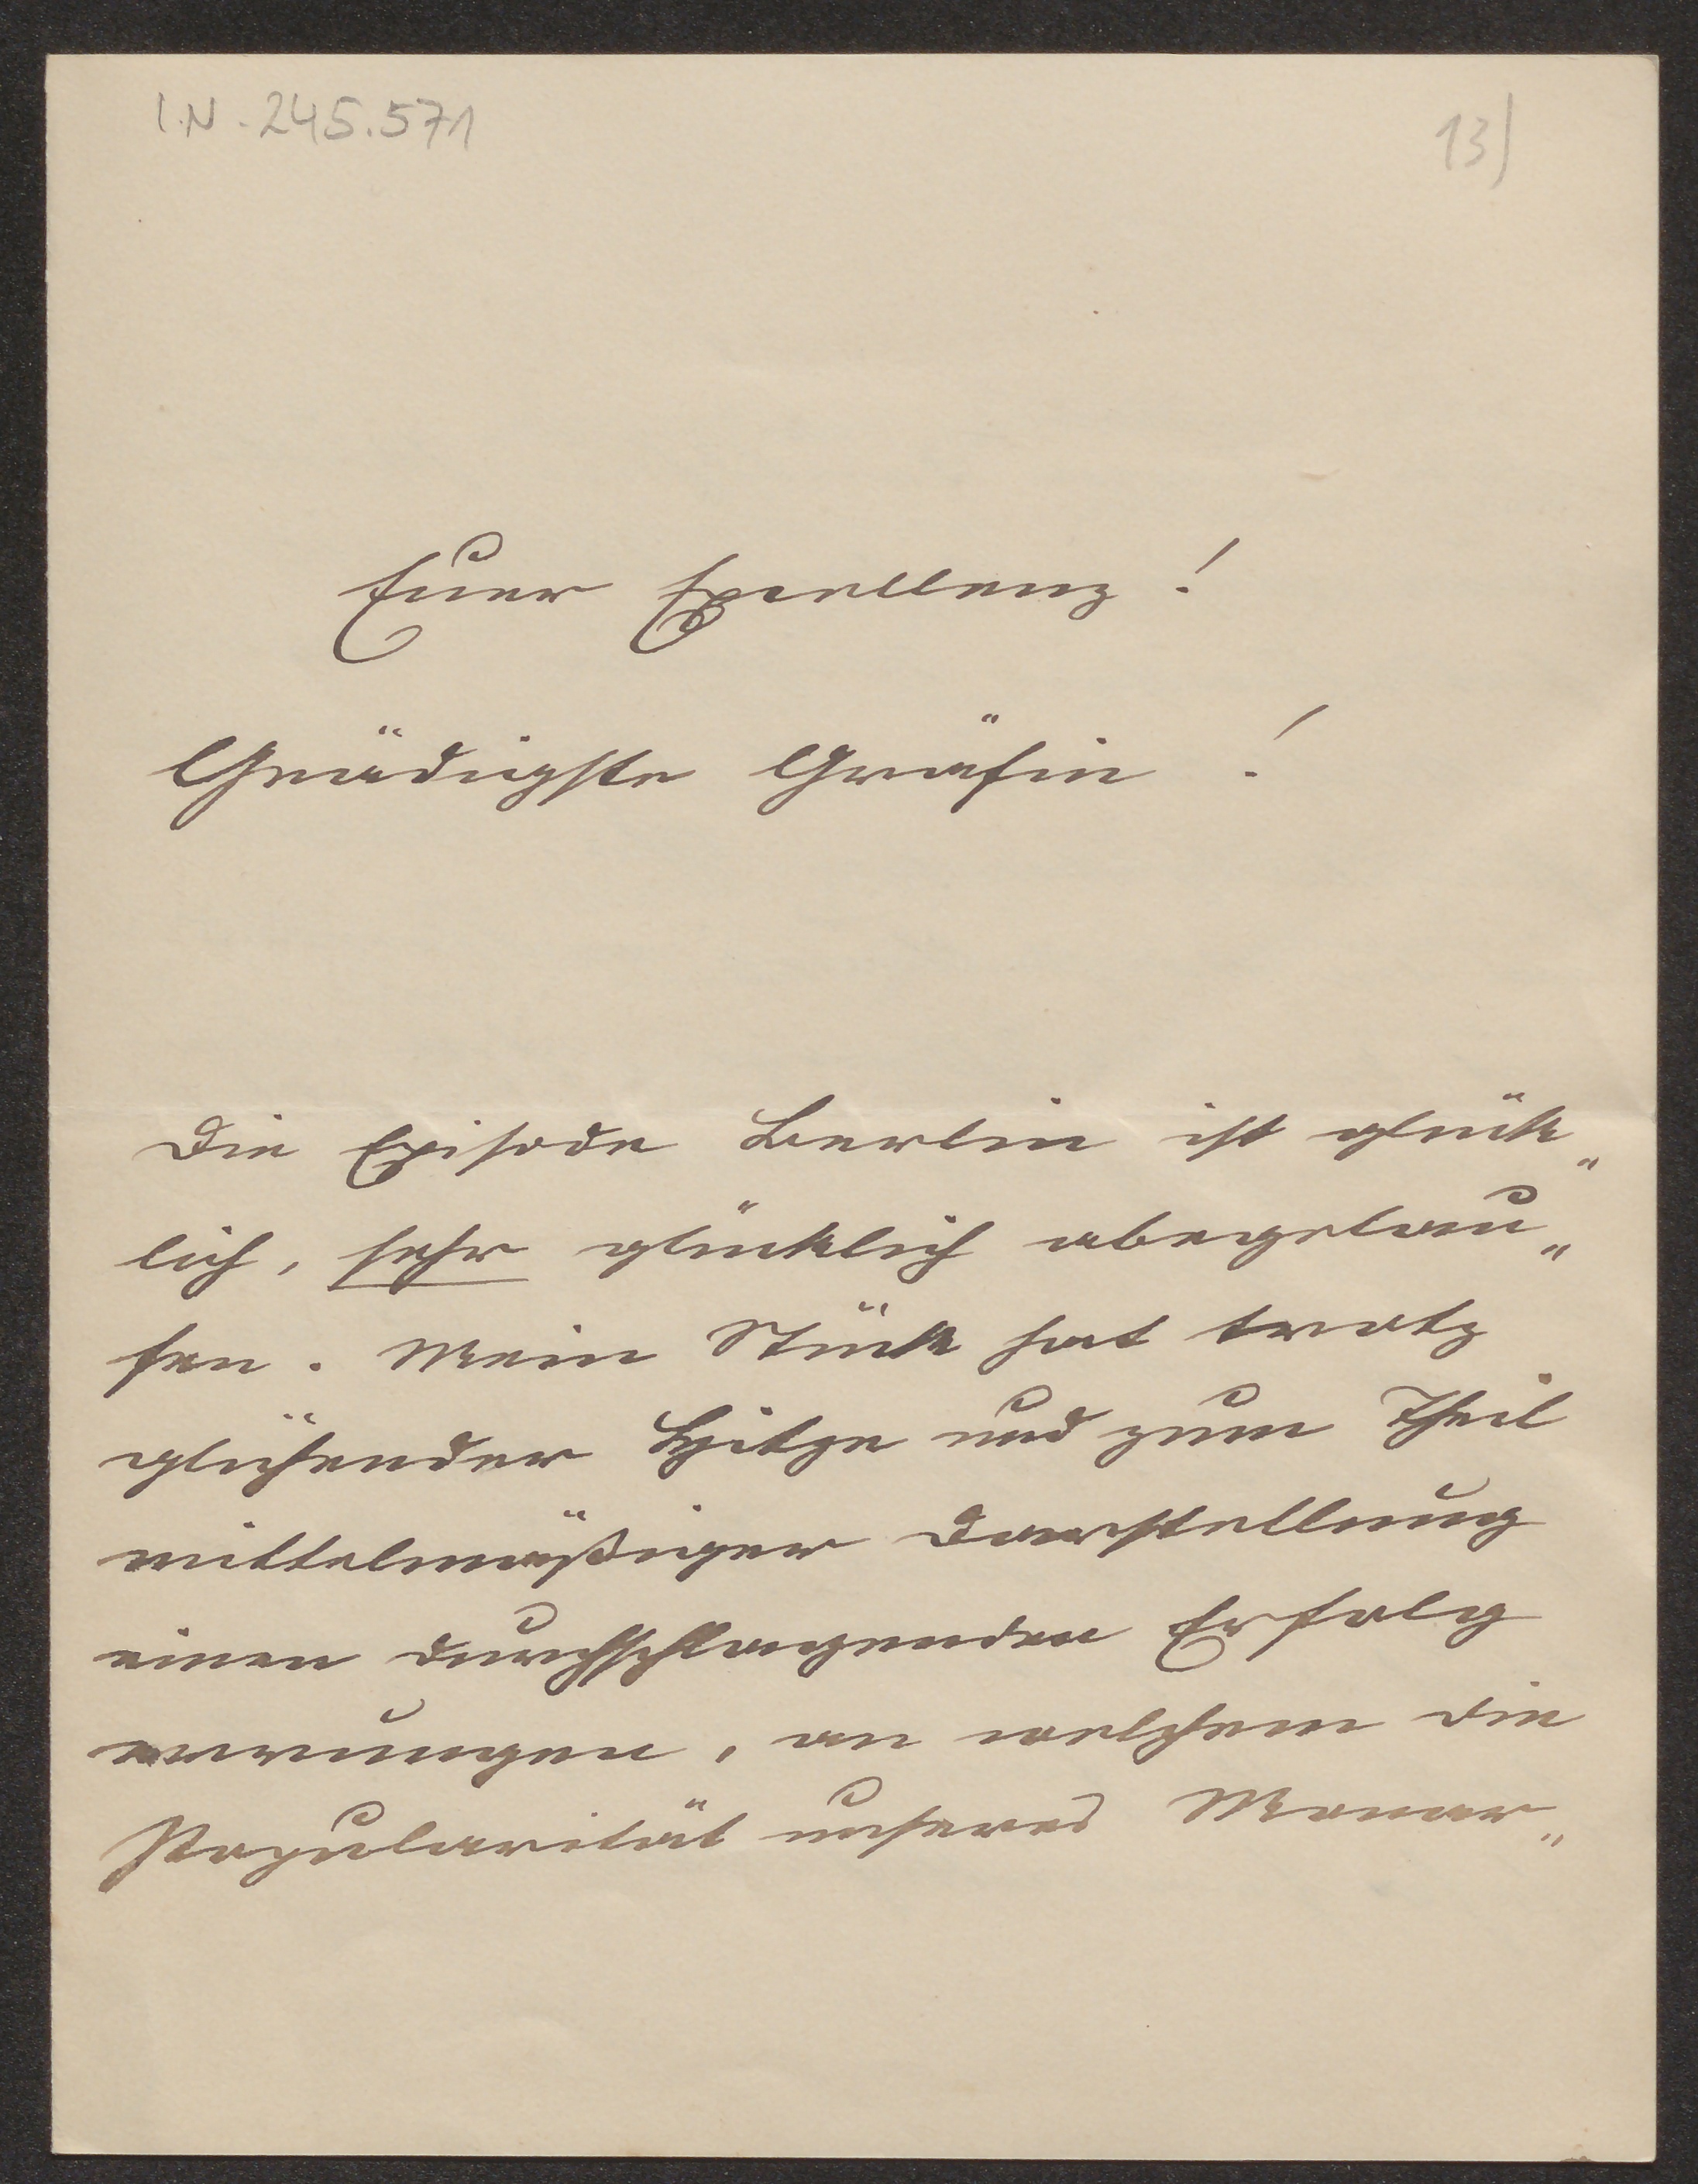 I.N. 245.571
13)
Euer Excellenz!
Gnädigste Gräfin!
Die Episode Berlin ist glück„
lich, sehr glücklich abgelau„
fen. Mein Stück hat trotz
glühender Hitze und zum Theil
mittelmäßiger Darstellung
einen durchschlagenden Erfolg
errungen, an welchem die
Popularität unseres Monar„